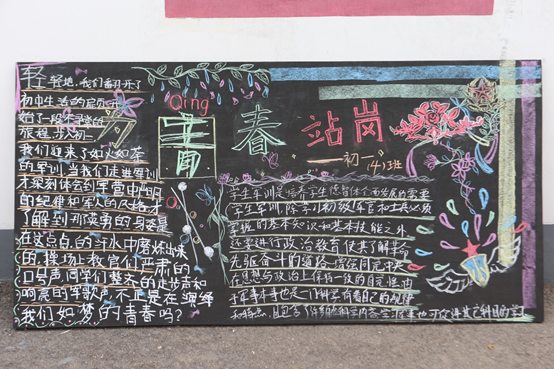 轻轻地,我们翻开了
初中生活的扉页,开
始了一段未寻
旅程,步入初一
我们迎来了如火如荼
的军训,当我们走进军训
才深刻体会到军营中严明
的纪律和军人的风格才
了解到那英勇的身姿是
在这点点的汗水中磨炼出来
的。操场上教官们严肃的
口号声,同学们整齐的走步声和
响亮的军歌声,不正是在演绎
我们如梦的青春吗?
Qing
青春站岗
—初一(4)班
学生军训是培养学生德智体全面发展的需要
学生军训,除学习初级军官和士兵必须
掌握的基本知识和基本技能之外
还要进行政治教育,使其了解我
在思想与政治上保持一致的自觉性,由
于军事本事也是门科学有着自己的规律
和特点,且包含了许多自然科学内容